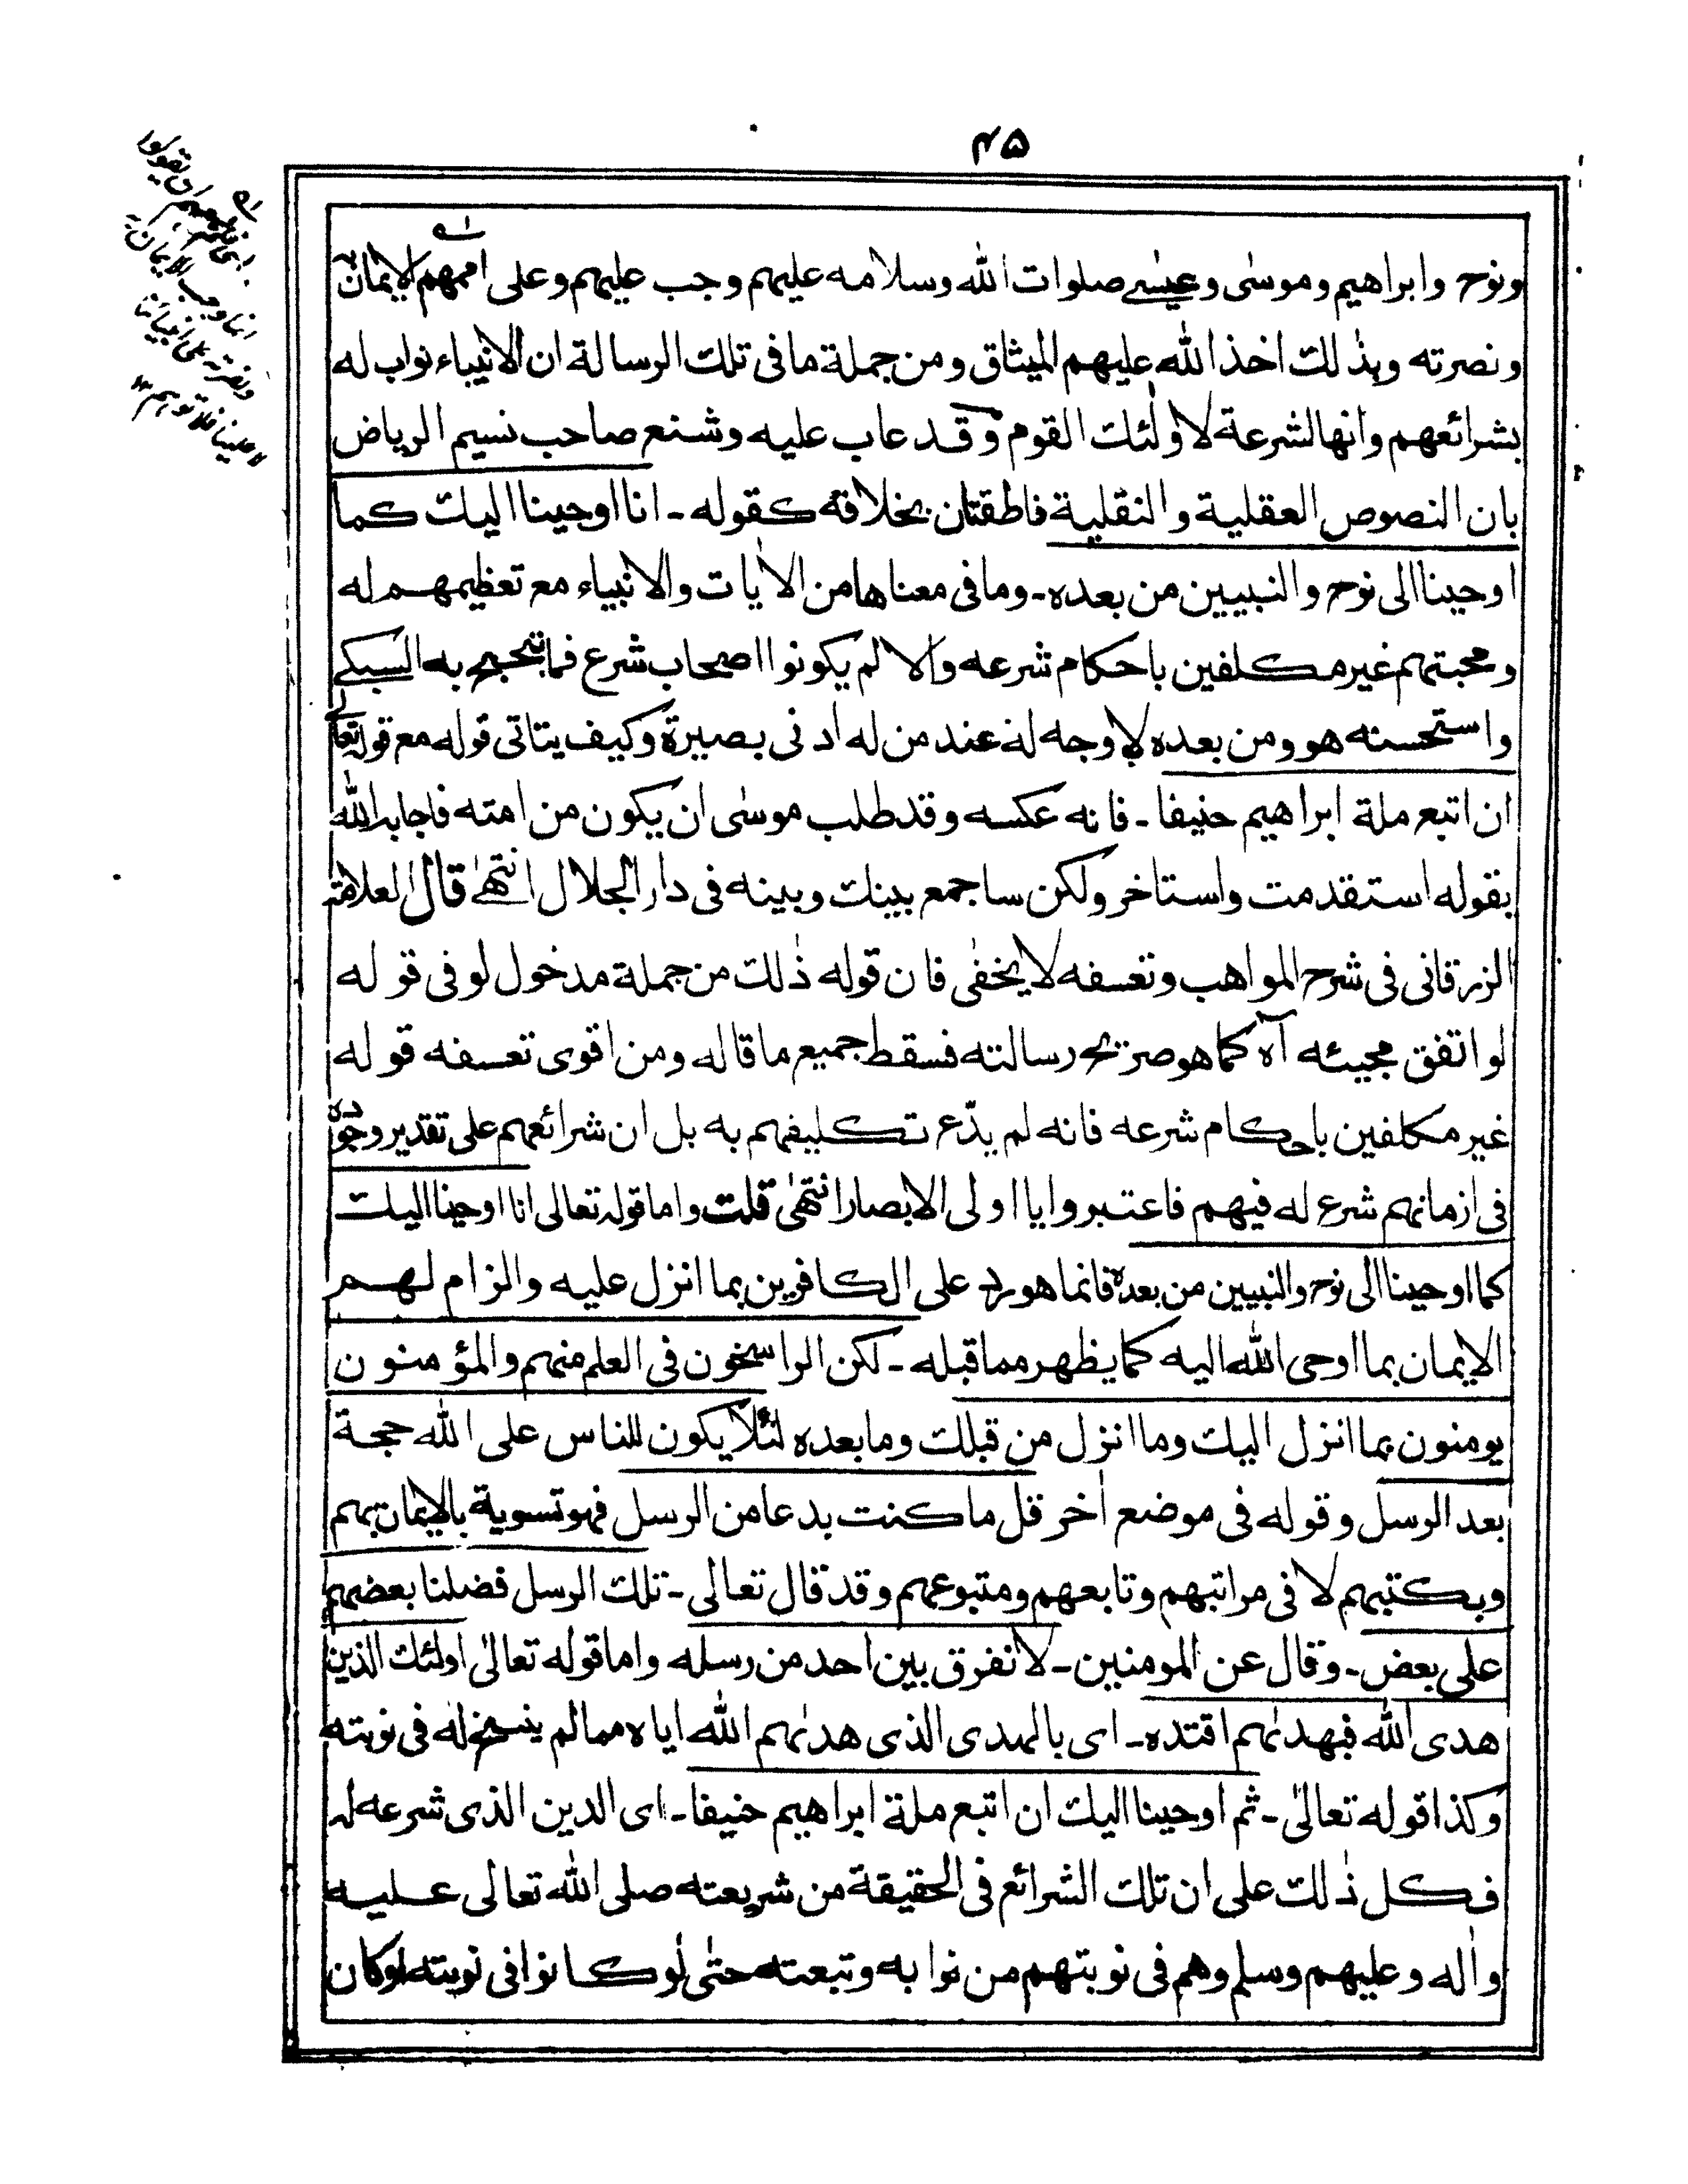 ۴۵
ونوح وابراهيم وموسٰى وعيسٰے صلوات الله وسلامه عليهم وجب عليهم وعلى اممهم الايمان
ونصرته وبذٰلك اخذ الله عليهم الميثاق ومن جملة ما فى تلك الرسالة ان الانبياء نواب له
بشرائعهم وانها لشرعة لاولٰئك القوم وقد عاب عليه وشنع صاحب نسيم الرياض
بان النصوص العقلية والنقلية ناطقتان بخلافه كقوله ـ انا اوحينا اليك كما
اوحينا الى نوح والنبيين من بعده ـ وما فى معناها من الاٰيات والانبياء مع تعظيمهم له
ومحبتهم غير مكلفين باحكام شرعه والا لم يكونوا اصحاب شرع فما تبجح به السبكے
واستحسنه هو ومن بعده لاوجه له عند من له ادنى بصيرة وكيف يتاتى قوله مع قوله تعالٰے
ان اتبع ملة ابراهيم حنيفا ـ فانه عكسه وقد طلب موسٰى ان يكون من امته فاجابه الله
بقوله استقدمت واستاخر ولكن ساجمع بينك وبينه فى دار الجلال انتهٰے قال العلامة
الزرقانى فى شرح المواهب وتعسفه لا يخفٰى فان قوله ذٰلك من جملة مدخول لو فى قوله
لو اتفق مجيئه اٰه كما هو صريح رسالته فسقط جميع ما قاله ومن اقوى تعسفه قوله
غير مكلفين باحكام شرعه فانه لم يدّع تكليفهم به بل ان شرائعهم على تقدير وجوده
فى ازمانهم شرع له فيهم فاعتبروا يا اولى الابصار انتهٰى قلت واما قوله تعالى انا اوحينا اليك
كما اوحينا الى نوح والنبيين من بعده فانما هو رد على الكافرين بما انزل عليه والزام لهم
الايمان بما اوحى الله اليه كما يظهر مما قبله ـ لكن الراسخون فى العلم منهم والمؤمنون
يومنون بما انزل اليك وما انزل من قبلك وما بعده لئلا يكون للناس على الله حجة
بعد الرسل وقوله فى موضع اٰخر قل ما كنت بدعا من الرسل فهو تسوية بالايمان بهم
وبكتبهم لا فى مراتبهم وتابعهم ومتبوعهم وقد قال تعالى ـ تلك الرسل فضلنا بعضهم
على بعض ـ وقال عن المومنين ـ لا نفرق بين احد من رسله واما قوله تعالٰى اولئك الذين
هدى الله فبهدٰىهم اقتده ـ اى بالهدى الذى هدٰىهم الله اياه مما لم ينسخ له فى نوبته
وكذا قوله تعالٰى ـ ثم اوحينا اليك ان اتبع ملة ابراهيم حنيفا ـ اى الدين الذى شرعه له
فكل ذٰلك على ان تلك الشرائع فى الحقيقة من شريعته صلى الله تعالى عليه
واٰله وعليهم وسلم وهم فى نوبتهم من نوابه وتبعته حتٰى لو كانوا فى نوبته لو كان